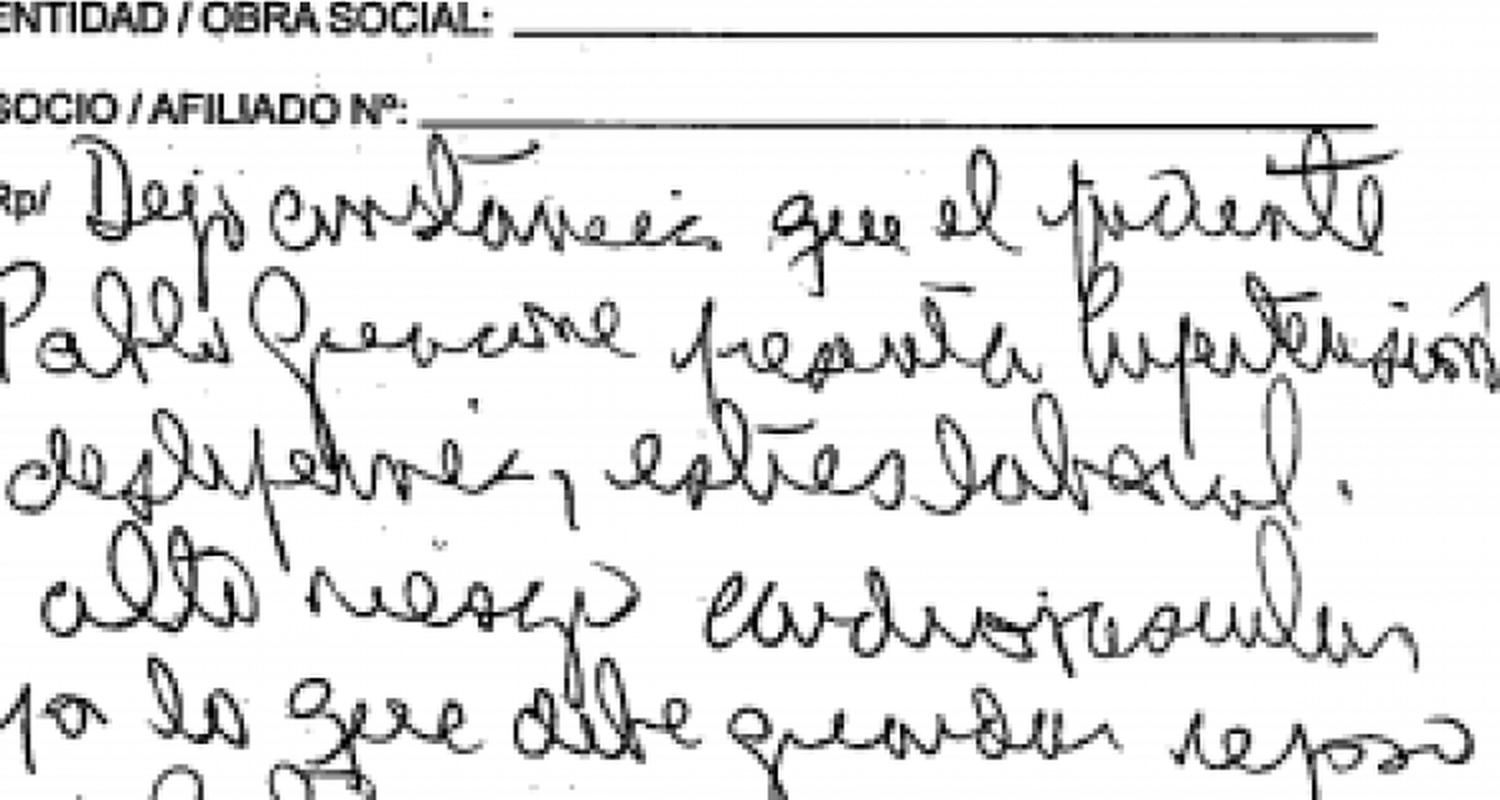 ENTIDAD / OBRA SOCIAL:
SOCIO / AFILIADO Nº:
Rp/ Dejo constancia que el paciente
Pablo presenta hipertensión
deslipemia, estres laboral.
alto riesgo cardiovascular
por lo que debe guardar reposo